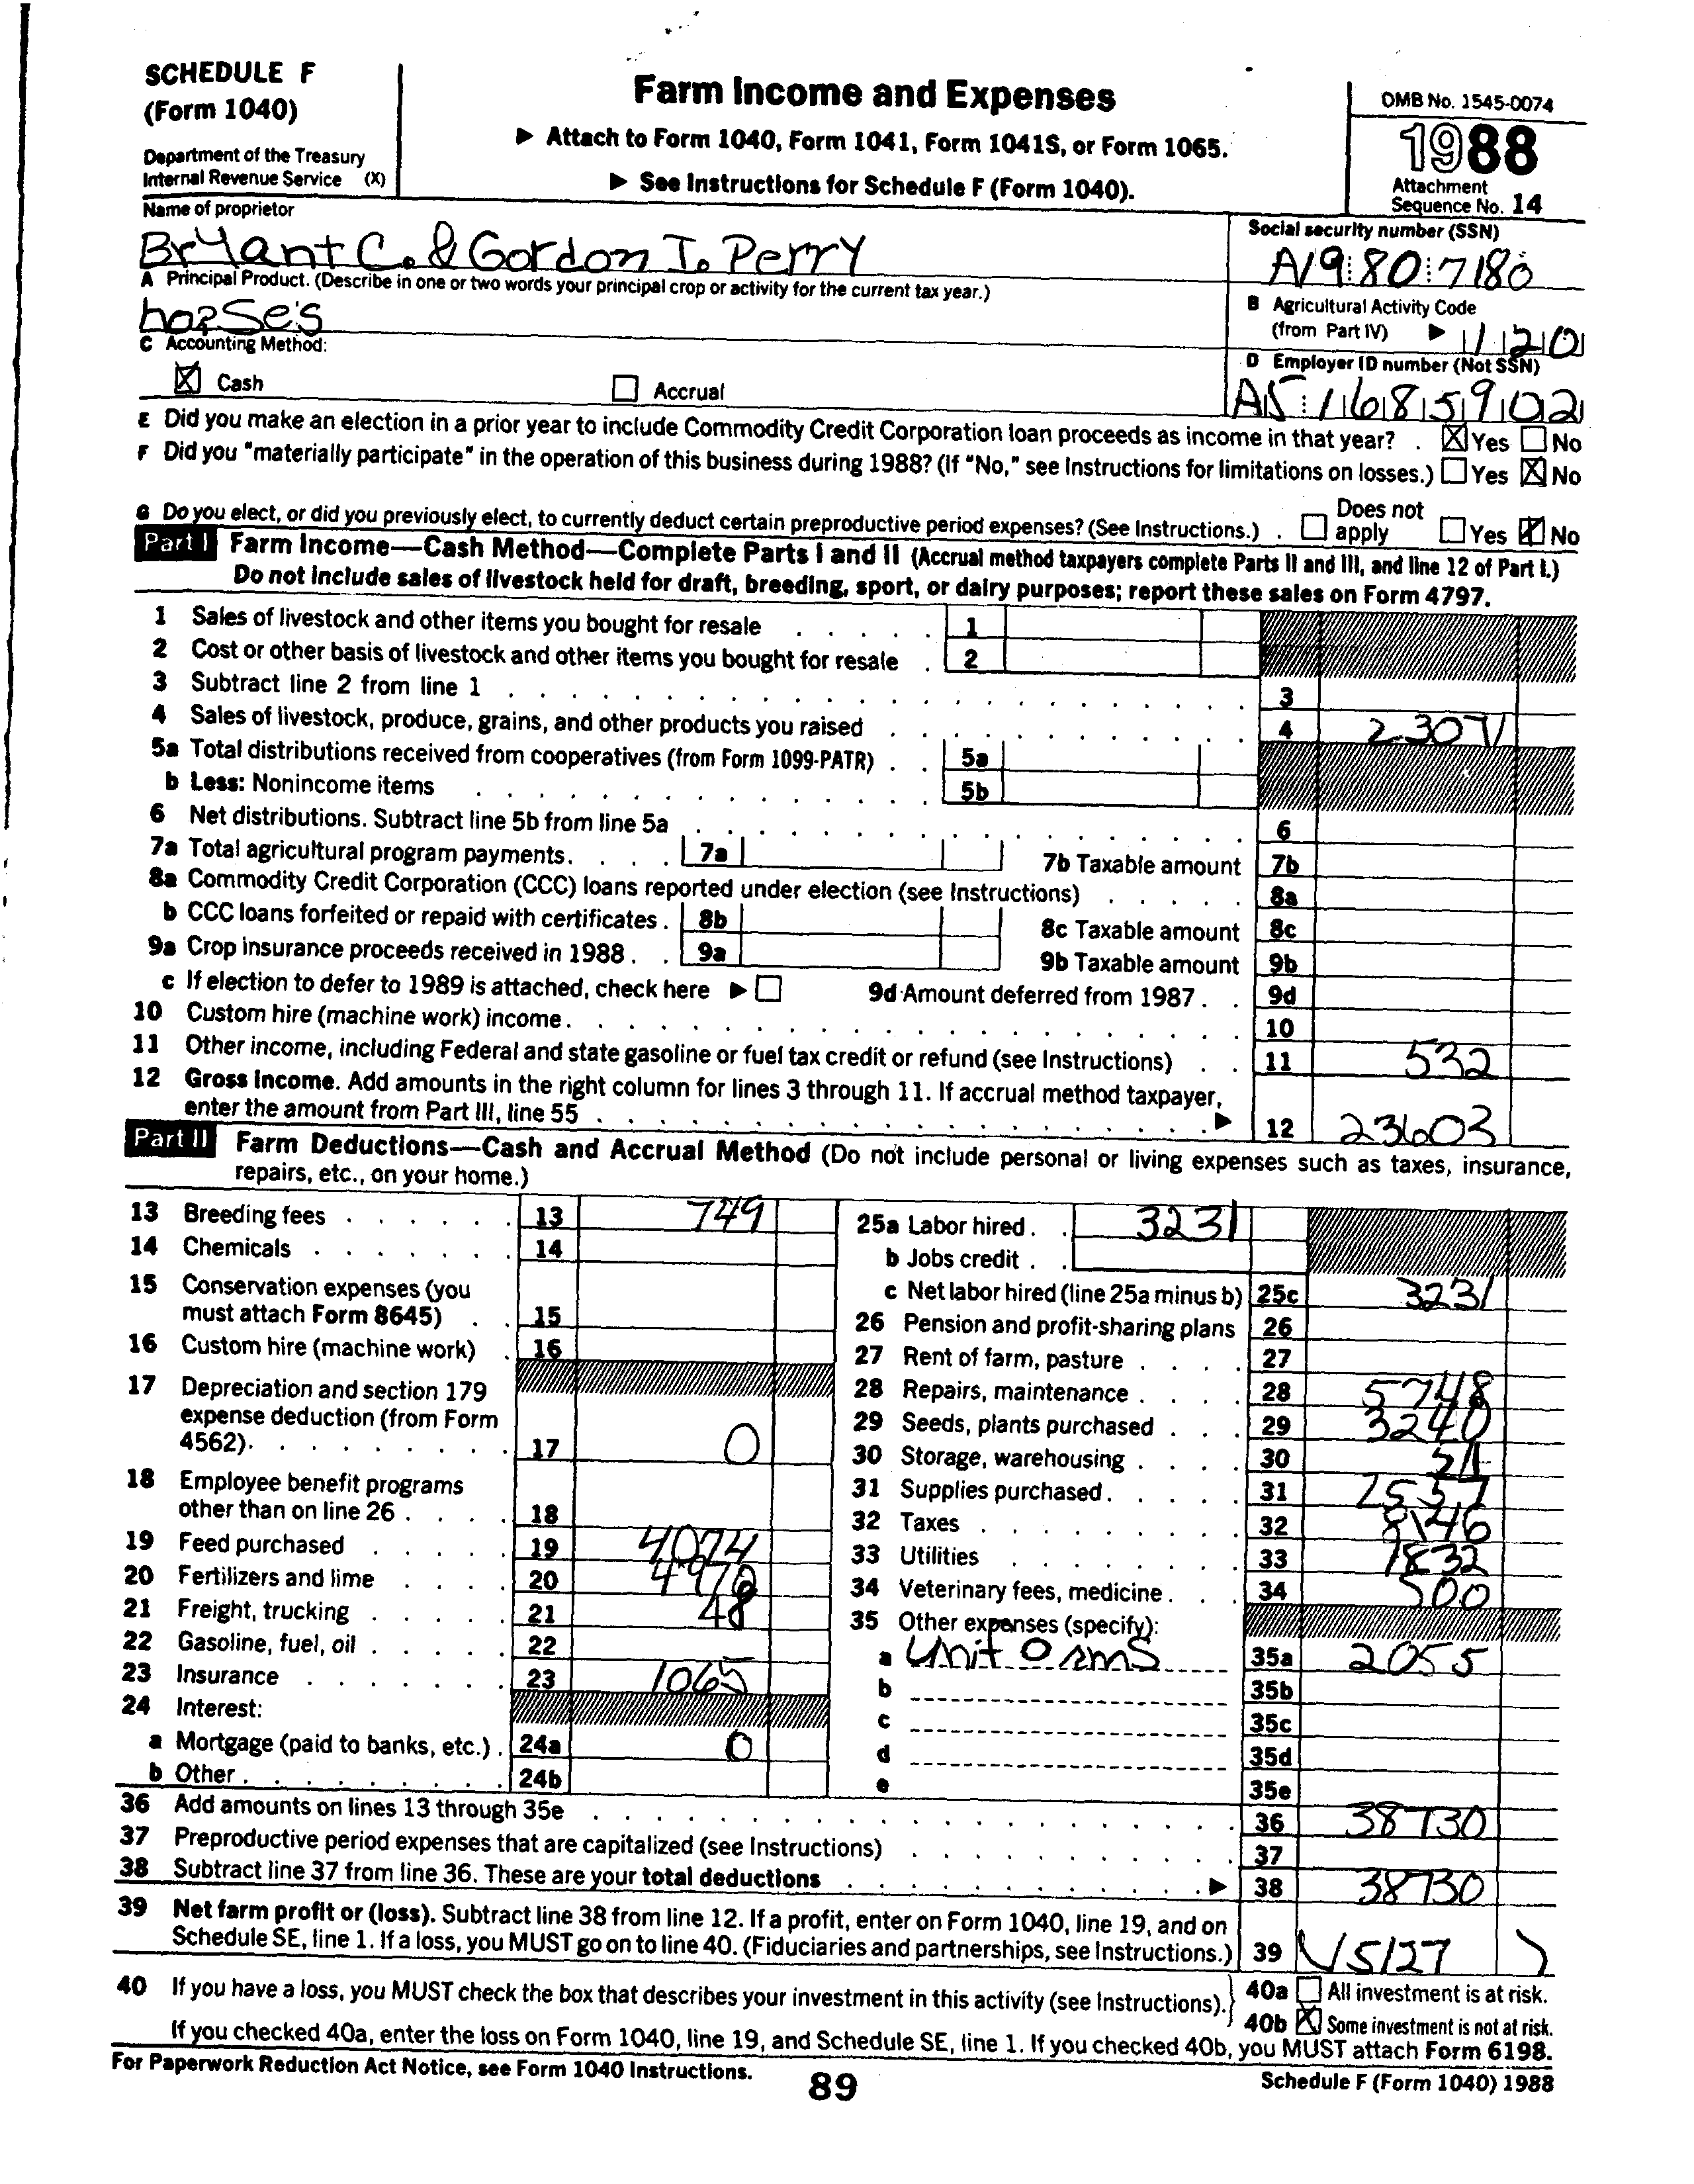 SCHEDULE F
(Form 1040)
Department of the Treasury
Internal Revenue Service (X)
Farm Income and Expenses
▶ Attach to Form 1040, Form 1041, Form 1041S, or Form 1065.
▶ See Instructions for Schedule F (Form 1040).
OMB No. 1545-0074
1988
Attachment
Sequence No. 14
Name of proprietor
Bryant C. & Gordon T. Perry
Social security number (SSN)
A19 80 7180
A Principal Product. (Describe in one or two words your principal crop or activity for the current tax year.)
horse's
B Agricultural Activity Code
(from Part IV) ▶ 120
C Accounting Method:
☒ Cash ☐ Accrual
D Employer ID number (Not SSN)
A5 1685902
E Did you make an election in a prior year to include Commodity Credit Corporation loan proceeds as income in that year? . ☒ Yes ☐ No
F Did you "materially participate" in the operation of this business during 1988? (If "No," see Instructions for limitations on losses.) ☐ Yes ☒ No
G Do you elect, or did you previously elect, to currently deduct certain preproductive period expenses? (See Instructions.) . ☐ Does not apply ☐ Yes ☒ No
Part I Farm Income—Cash Method—Complete Parts I and II (Accrual method taxpayers complete Parts II and III, and line 12 of Part I.)
Do not include sales of livestock held for draft, breeding, sport, or dairy purposes; report these sales on Form 4797.
1 Sales of livestock and other items you bought for resale 1
2 Cost or other basis of livestock and other items you bought for resale 2
3 Subtract line 2 from line 1 3
4 Sales of livestock, produce, grains, and other products you raised 4 23071
5a Total distributions received from cooperatives (from Form 1099-PATR) 5a
b Less: Nonincome items 5b
6 Net distributions. Subtract line 5b from line 5a 6
7a Total agricultural program payments. 7a 7b Taxable amount 7b
8a Commodity Credit Corporation (CCC) loans reported under election (see Instructions) 8a
b CCC loans forfeited or repaid with certificates . 8b 8c Taxable amount 8c
9a Crop insurance proceeds received in 1988 . 9a 9b Taxable amount 9b
c If election to defer to 1989 is attached, check here ▶ ☐ 9d Amount deferred from 1987 . 9d
10 Custom hire (machine work) income. 10
11 Other income, including Federal and state gasoline or fuel tax credit or refund (see Instructions) 11 532
12 Gross Income. Add amounts in the right column for lines 3 through 11. If accrual method taxpayer,
enter the amount from Part III, line 55 ▶ 12 23603
Part II Farm Deductions—Cash and Accrual Method (Do not include personal or living expenses such as taxes, insurance,
repairs, etc., on your home.)
13 Breeding fees 13 749
14 Chemicals 14
15 Conservation expenses (you
must attach Form 8645) 15
16 Custom hire (machine work) 16
17 Depreciation and section 179
expense deduction (from Form
4562). 17 0
18 Employee benefit programs
other than on line 26 . 18
19 Feed purchased 19 4074
20 Fertilizers and lime 20
21 Freight, trucking 21 48
22 Gasoline, fuel, oil 22
23 Insurance 23 1065
24 Interest:
a Mortgage (paid to banks, etc.) . 24a 0
b Other . 24b
25a Labor hired . 3231
b Jobs credit .
c Net labor hired (line 25a minus b) 25c 3231
26 Pension and profit-sharing plans 26
27 Rent of farm, pasture 27
28 Repairs, maintenance 28 5748
29 Seeds, plants purchased 29 3240
30 Storage, warehousing 30
31 Supplies purchased. 31
32 Taxes 32
33 Utilities 33 1832
34 Veterinary fees, medicine . 34 500
35 Other expenses (specify):
a Uniforms 35a 2055
b 35b
c 35c
d 35d
e 35e
36 Add amounts on lines 13 through 35e 36 38730
37 Preproductive period expenses that are capitalized (see Instructions) 37
38 Subtract line 37 from line 36. These are your total deductions ▶ 38 38730
39 Net farm profit or (loss). Subtract line 38 from line 12. If a profit, enter on Form 1040, line 19, and on
Schedule SE, line 1. If a loss, you MUST go on to line 40. (Fiduciaries and partnerships, see Instructions.) 39 (15127 )
40 If you have a loss, you MUST check the box that describes your investment in this activity (see Instructions).
40a ☐ All investment is at risk.
40b ☒ Some investment is not at risk.
If you checked 40a, enter the loss on Form 1040, line 19, and Schedule SE, line 1. If you checked 40b, you MUST attach Form 6198.
For Paperwork Reduction Act Notice, see Form 1040 Instructions.
89
Schedule F (Form 1040) 1988